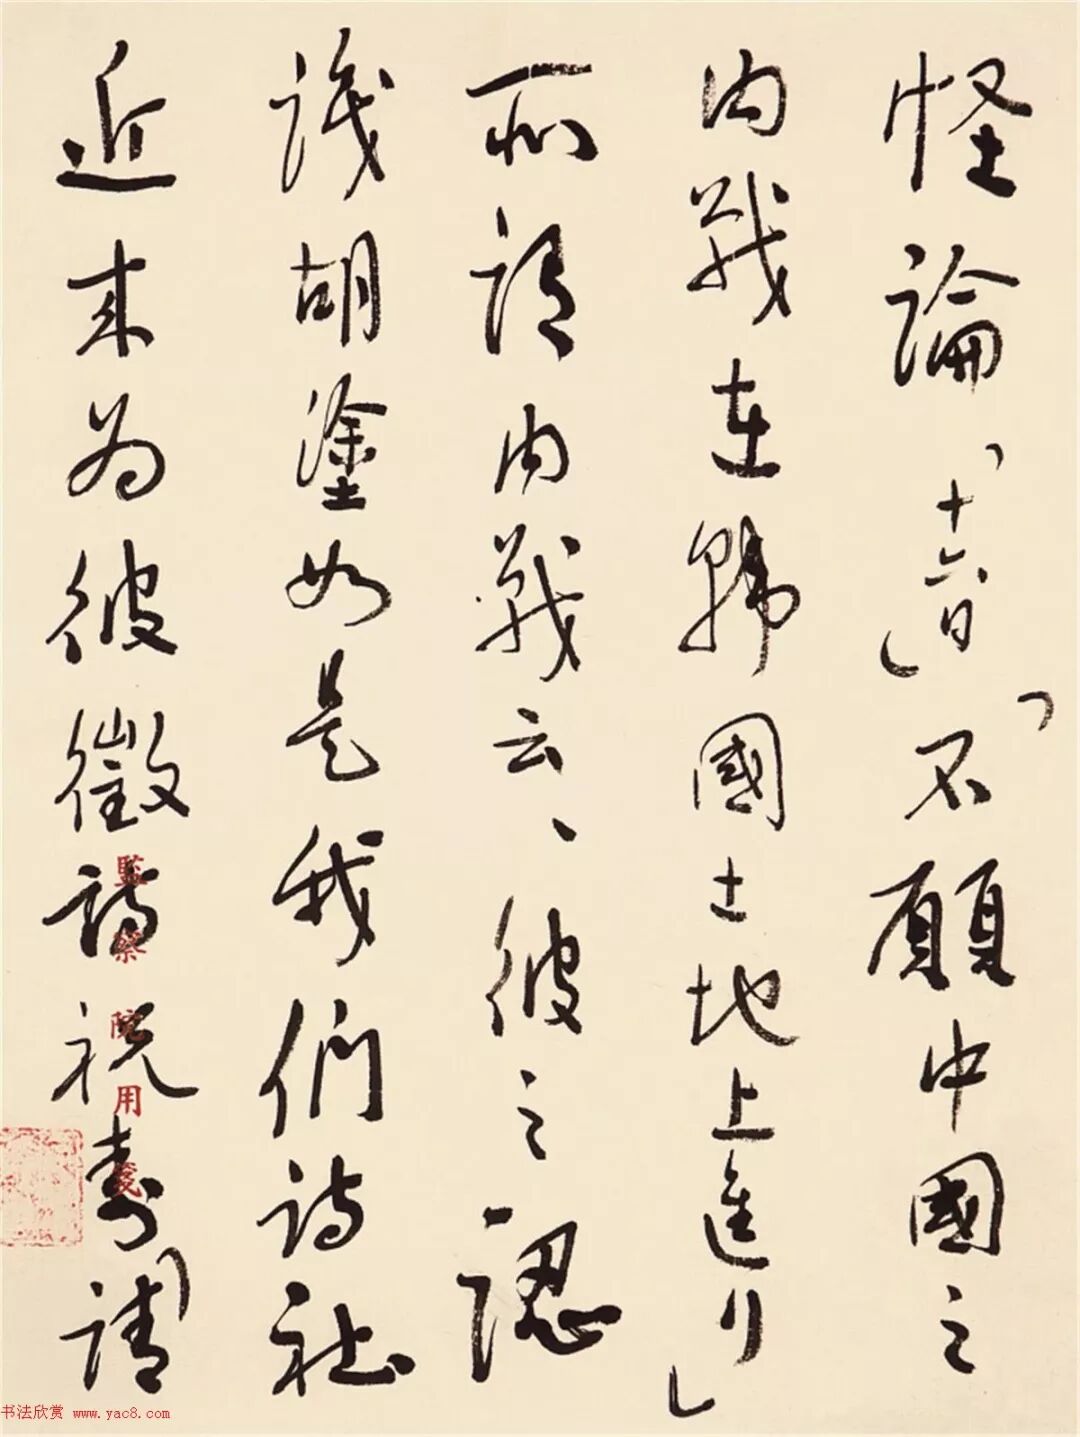 怪論「十六日」「不願中國之
内戰在韓國土地上進行」
所謂内戰云、彼之認
識胡塗如是我們詩社
近來為彼徵詩祝壽請
監察院用箋
书法欣赏 www.yac8.com